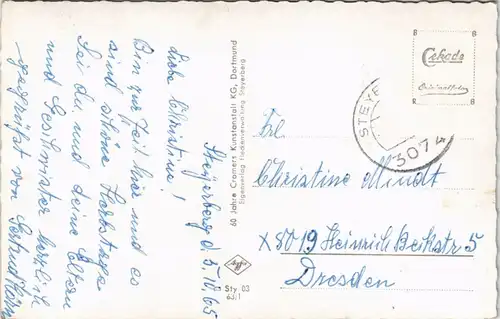 Steyerberg d. 5.10.65
Liebe Christine!
Bin zur Zeit hier und es
sind schöne Herbsttage
Sei du und deine Eltern
und Geschwister herzlich
gegrüßt von Gertrud
60 Jahre Cramers Kunstanstalt KG, Dortmund
Eigenverlag Fleckenverwaltung Steyerberg
Sty 03
63:1
Cekade
Originalfoto
STEYE
3074
Frl.
Christine Mindt
X 8019 Heinrich Beckstr. 5
Dresden